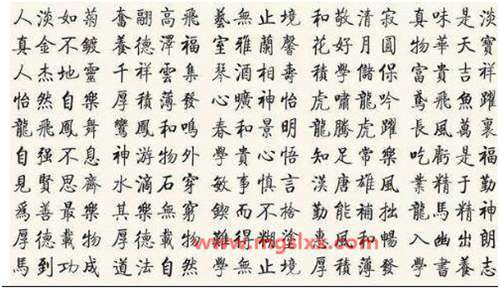 人淡如菊 奮翮高飛 藝無止境 和敬清寂 真味是淡
真金不鍍 養德澤福 室雅蘭馨 花好月圓 物華天寶
人杰地靈 千祥雲集 琴酒相壽 積學儲保 富貴吉祥
怡然自樂 厚積薄發 心曠神怡 虎嘯龍吟 鳶飛魚躍
龍飛鳳舞 鸞鳳和鳴 春和景明 龍騰虎躍 長風萬裏
自强不息 神游物外 學貴心悟 知足常樂 吃虧是福
見賢思齋 水滴石穿 敏事慎言 漢唐雄風 業精于勤
爲善最樂 其樂無窮 鍥而不捨 勤能補拙 龍馬精神
厚德載物 難得糊塗 惠風和暢 入幽出朗
馬到功成 道法自然 學無止境 厚積薄發 學書養志
www.mgslxx.com